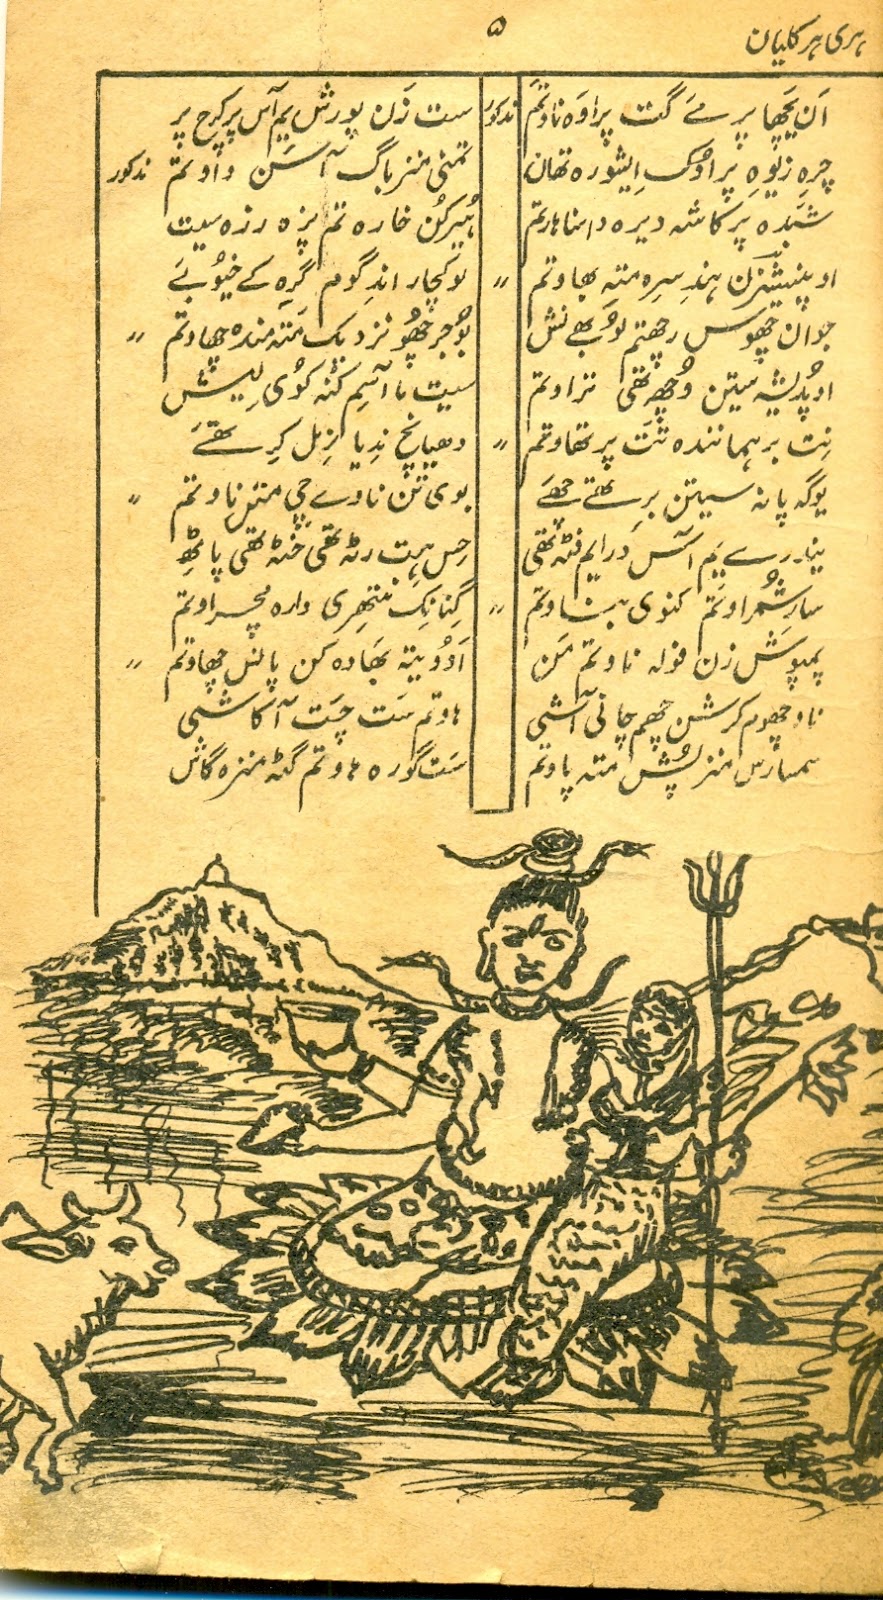 ہری ہر کلیان
۵
اَن یَچھا پر مے گت پراوہ ناوتم ندکور
چرہ زیوہ پر ادک اِیشورہ تھان
شبدہ پرکاشہ دیرہ داسنا ہارتم
اوپنیشدن ہندِ سرہ متہ بھاوتم 〃
جوان چھوس رچھتم لوبھے نش
اوپدیشہ سیتن وُچھ تھی تراوتم
نت برہمانندہ تت پر تھاوتم 〃
یوگہ پانہ سیتن بر تھے چھے
یندرے یم آس درایم فٹہ تھی
سارِ شُمراوتم کنوی بناوتم 〃
پمپوش زن فولہ ناوتم من
ناو چھم کرشن چھم چانی آشی
سمسارس منز پُش متہ پاوتم
ست زَن پورش یم آس پر کرچ پر
تمنی منز باگ آسن داوتم ندکور
ہیر کن خارہ تم پزہ رزہ سیت
بو کچار اندِ گوم گرہ کے خیُوبے
بوُجر چھُو نزدیک متہ مندہ چھاوتم 〃
سیت نا آسِم کنہ کوی لیش
دھیانچ ندیا نرمل کرِ تھے
بوی تن ناوے چی منش ناوتم 〃
جس ہت رٹہ تھی خٹہ تھی پاٹھ
گنانک ننتھری وارہ مچراوتم
اَدویتہ بھادہ کن پالنس چھاوتم 〃
ہاوتم ست چت آکاشی
ست گورہ ہاوتم گٹہ منزہ گاش